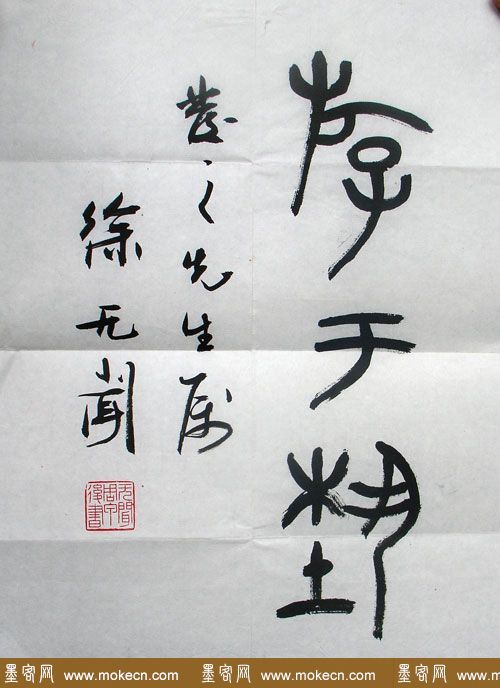 斿于埶
之先生属
徐无聞
无聞
後書
墨客网 www.mokecn.com 墨客网 www.mokecn.com 墨客网 www.m